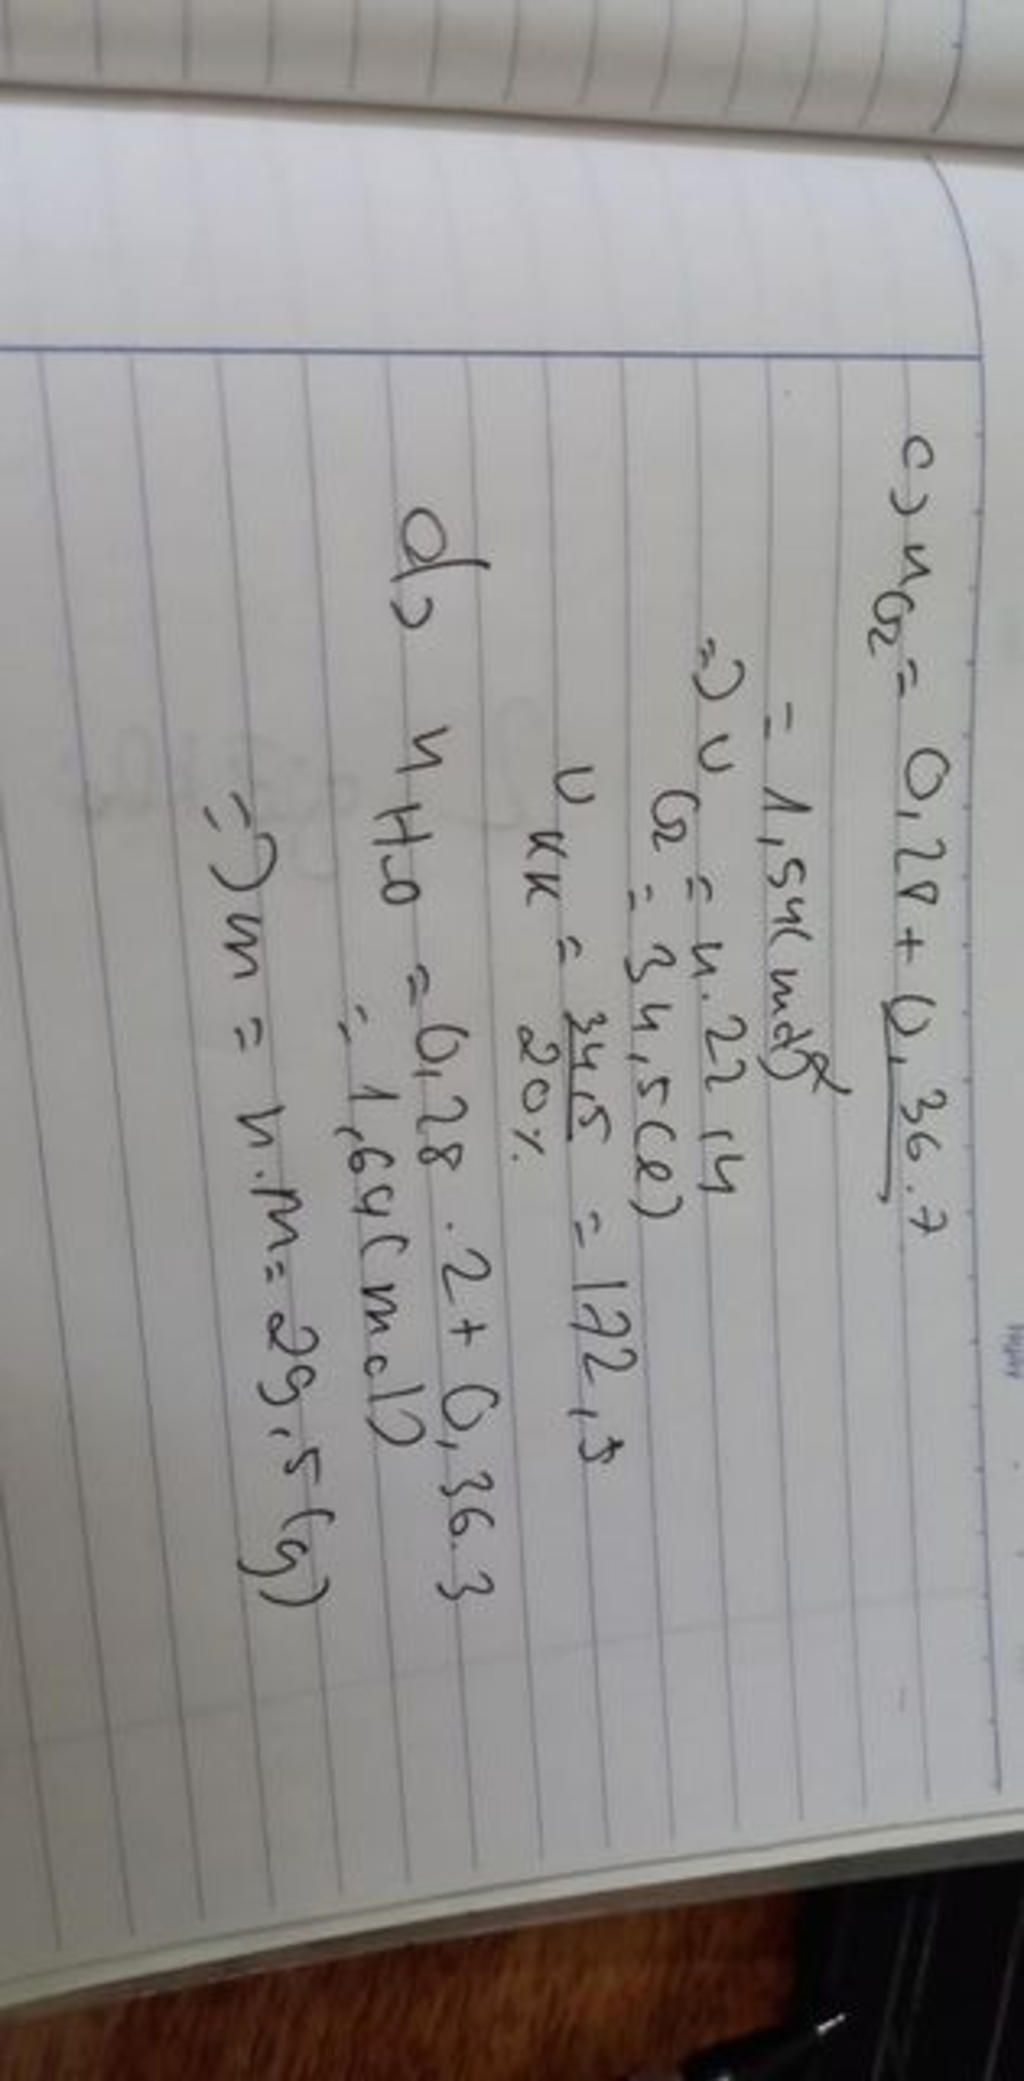 c) nO2 = 0,28 + 0,36.7
= 1,54(mol)
=) V O2 = n.22,4
= 34,5(l)
V KK = 34,5 / 20% = 172,5
d) n H2O = 0,28 . 2 + 0,36.3
= 1,64(mol)
=) m = n.M = 29,5(g)